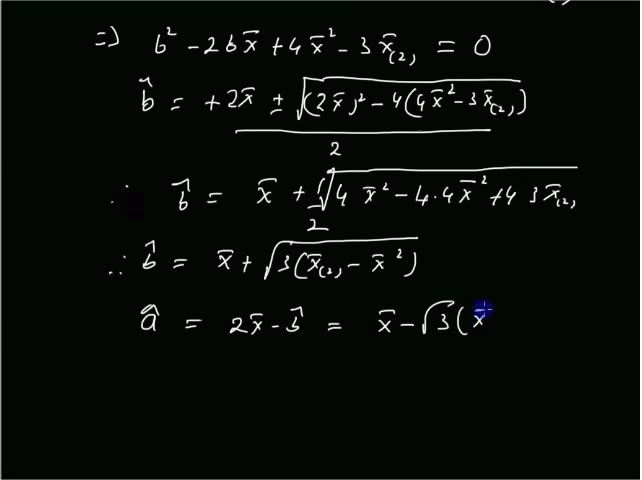 =) b² - 2bx̄ + 4x̄² - 3x̄₍₂₎ = 0
b̂ = +2x̄ ± √((2x̄)² - 4(4x̄² - 3x̄₍₂₎)) / 2
∴ b̂ = x̄ + 1/2 √(4 x̄² - 4·4x̄² + 4 3x̄₍₂₎
∴ b̂ = x̄ + √(3(x̄₍₂₎ - x̄²))
â = 2x̄ - b̂ = x̄ - √3(x̄